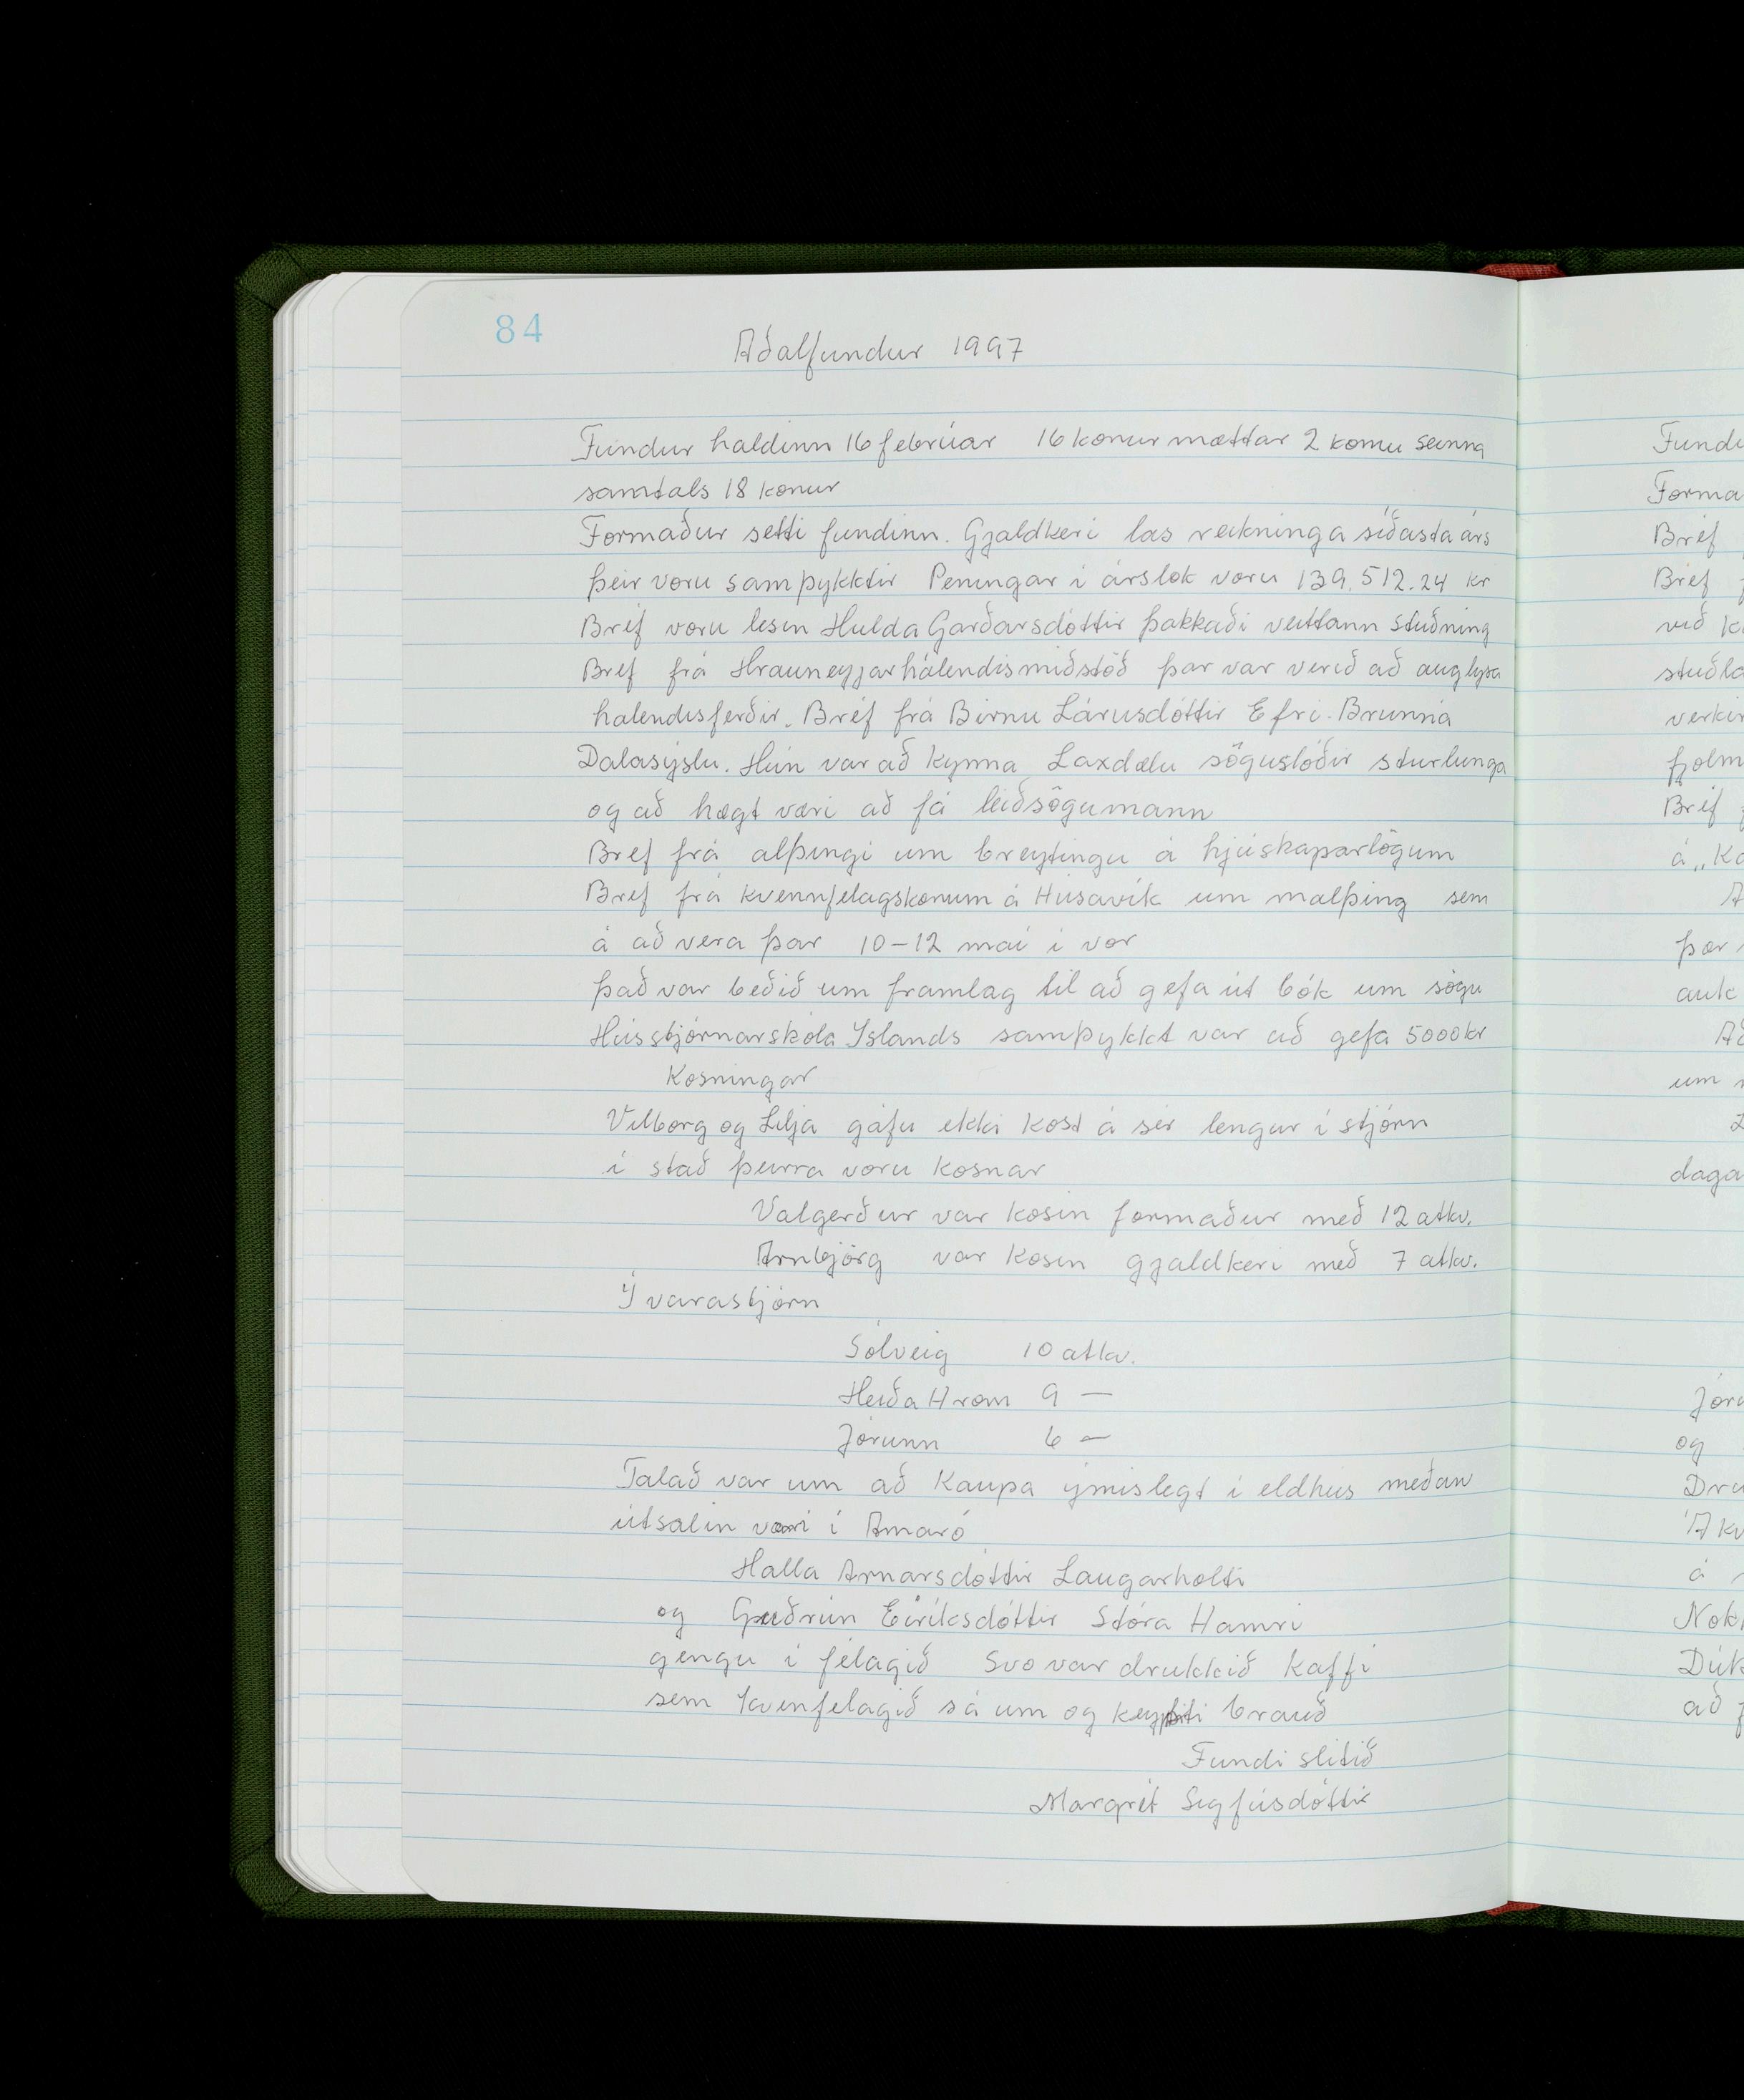 84
Aðalfundur 1997
Fundur haldinn 16 febrúar 16 konur mættar 2 komu seinna
samtals 18 konur
Formaður setti fundinn. Gjaldkeri las reikninga síðasta árs
þeir voru samþykktir Peningar í árslok voru 139.512.24 kr
Bréf voru lesin Hulda Garðarsdóttir þakkaði veittann stuðning
Bref frá Hrauneyjarhálendismiðstöð þar var verið að auglysa
halendisferðir. Bréf frá Birnu Lárusdóttir Efri-Brunná
Dalasýslu. Hún var að kynna Laxdælu söguslóðir sturlunga
og að hægt væri að fá leiðsögumann
Bref frá alþingi um breytingu á hjúskaparlögum
Bref frá kvennfelagskonum á Húsavík um malþing sem
á að vera þar 10-12 maí í vor
það var beðið um framlag til að gefa út bók um sögu
Hússtjórnarskóla Íslands samþykkt var að gefa 5000 kr
Kosningar
Vilborg og Lilja gáfu ekki kost á sér lengur í stjórn
í stað þeirra voru kosnar
Valgerður var kosin formaður með 12 atkv.
Arnbjörg var kosin gjaldkeri með 7 atkv.
Í varastjórn
Sólveig 10 atkv.
Heiða Hrom 9 —
Jórunn 6 —
Talað var um að kaupa ýmislegt í eldhús meðan
útsalin væri í Amaró
Halla Arnarsdóttir Laugarholti
og Guðrún Eiríksdóttir Stóra Hamri
gengu í félagið Svo var drukkið kaffi
sem kvenfelagið sá um og keypti brauð
Fundi slitið
Margrét Sigfúsdóttir
Fundu
Forma
Bréf
Bréf
við k
stuðla
verkin
fjolm
Bréf
á „Ko
þar
auk
um
daga
Jóru
og
Dru
Ákv
á
Nokk
Dúk
að